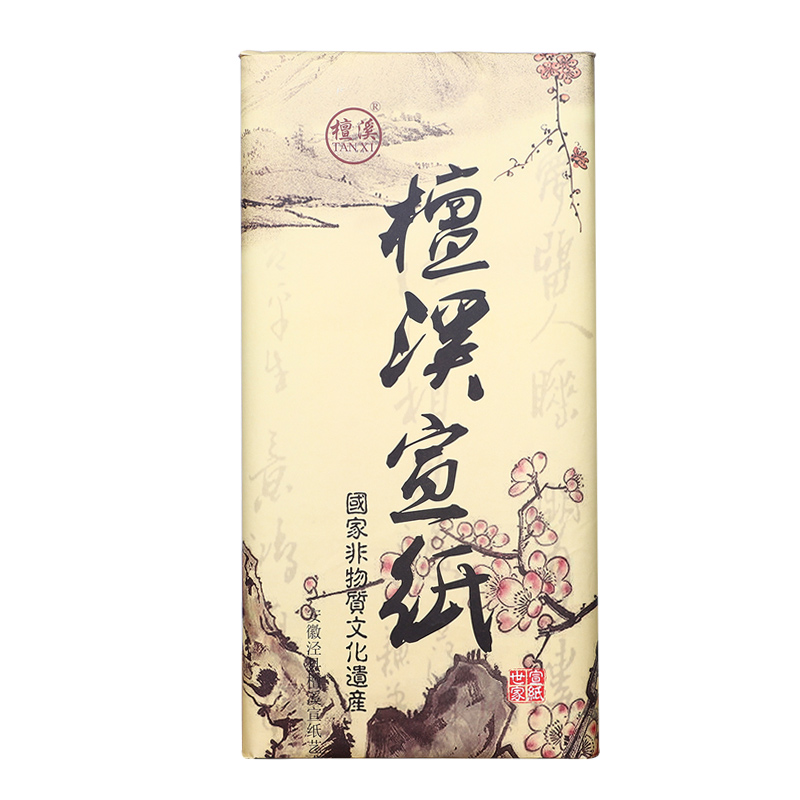 檀溪®
TANXI
檀溪宣紙
國家非物質文化遺産
安徽泾县檀溪宣纸艺
宣紙
世家